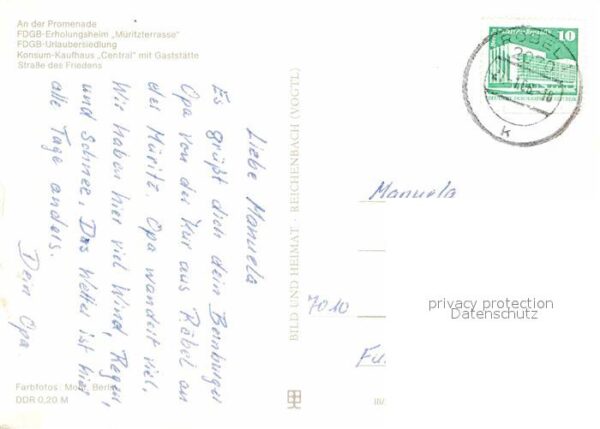 An der Promenade
FDGB-Erholungsheim „Müritzterrasse"
FDGB-Urlaubersiedlung
Konsum-Kaufhaus „Central" mit Gaststätte
Straße des Friedens
Liebe Manuela
Es grüßt dich dein Bernburger
Opa von der Kur aus Röbel an
der Müritz. Opa wandert viel.
Wir haben hier viel Wind, Regen,
und Schnee. Das Wetter ist hier
alle Tage anders.
Dein Opa.
Farbfotos: Berlin
DDR 0,20 M
BILD UND HEIMAT · REICHENBACH (VOGTL)
10
RÖBEL
k
Manuela
7010
privacy protection
Datenschutz